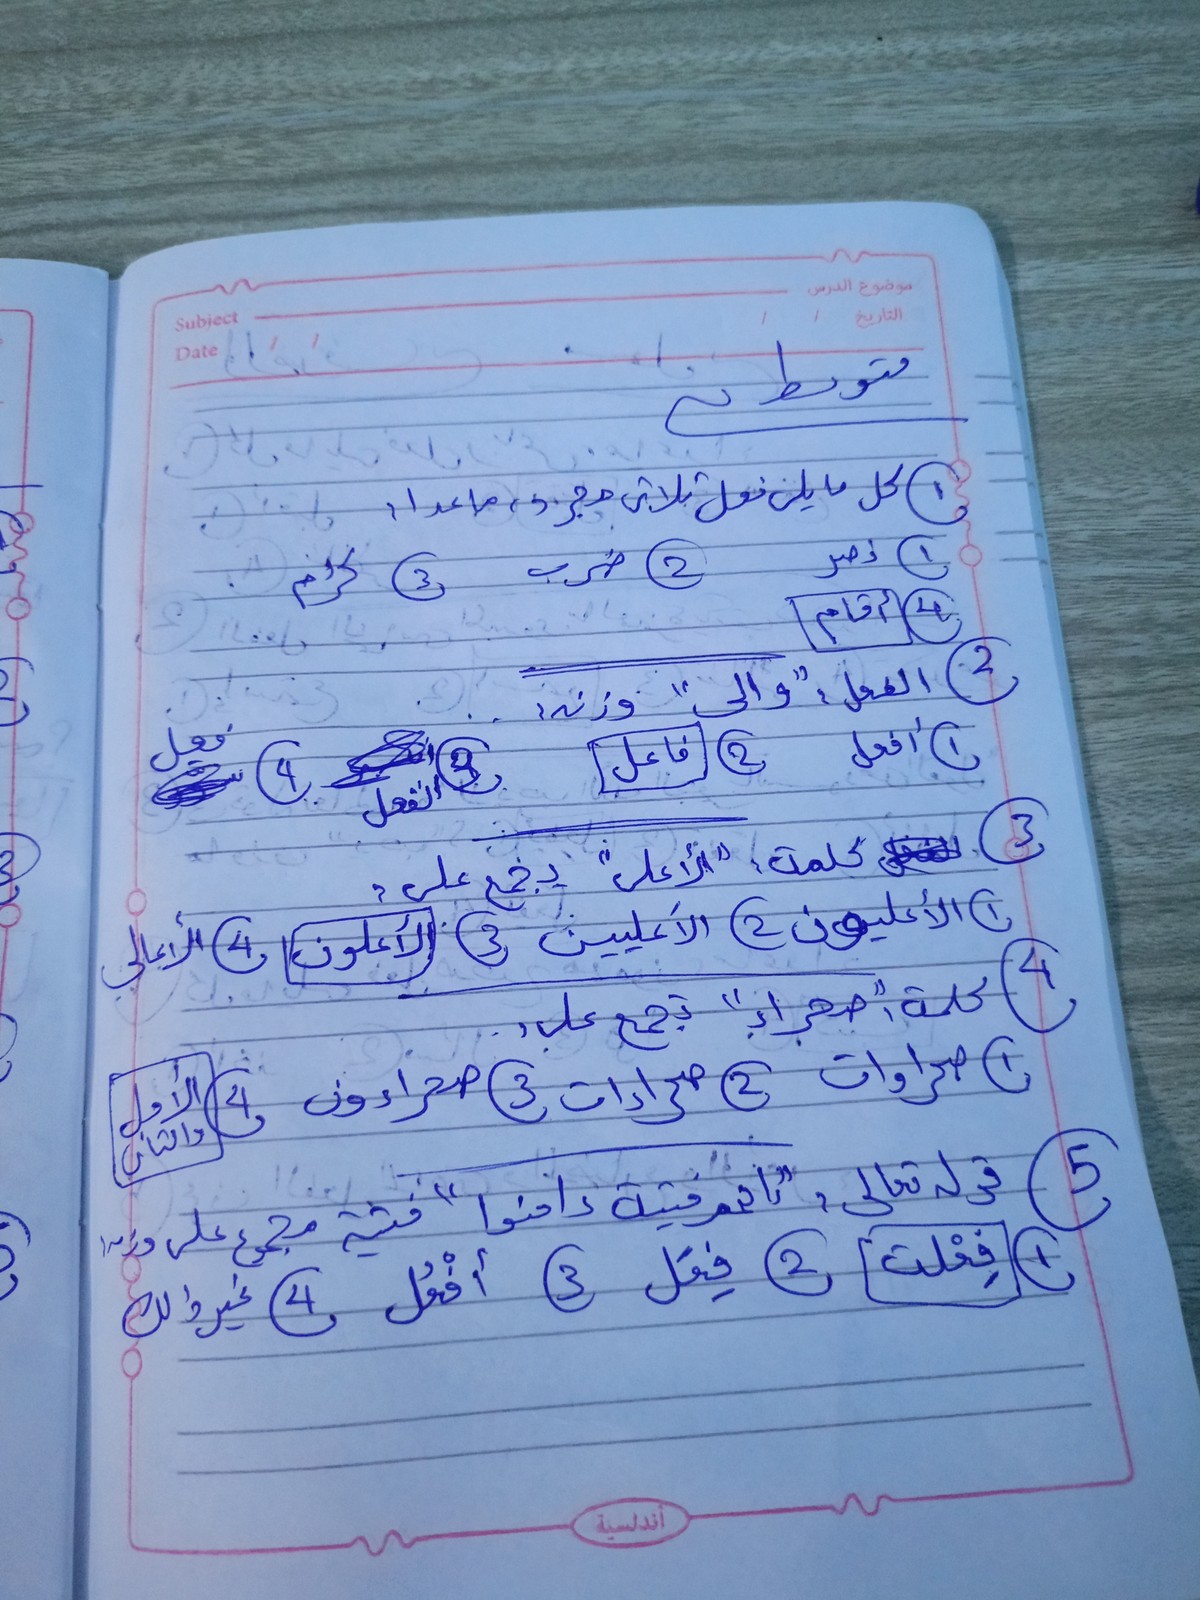 موضوع الدرس
Subject
التاريخ / /
Date / /
متوسط
① كل ما يلي فعل ثلاثي مجرد، ماعدا:
① نصر ② ضرب ③ كرُم
④ أقام
② الفعل: "والى" وزنه: ..
① أفعل ② فاعل ③ انفعل ④ فعيل
③ كلمة: "الأعلى" يجمع على:
① الأعليون ② الأعليين ③ الأعلون ④ الأعالي
④ كلمة: "صحراء" تجمع على: ..
① صحراوات ② صحراءات ③ صحراءون ④ الأول والثاني
⑤ قوله تعالى: "إنهم فتية ءامنوا" فتية مجموع على وزن:
① فِعْلة ② فِعَل ③ أفْعُل ④ غير ذلك
أندلسية